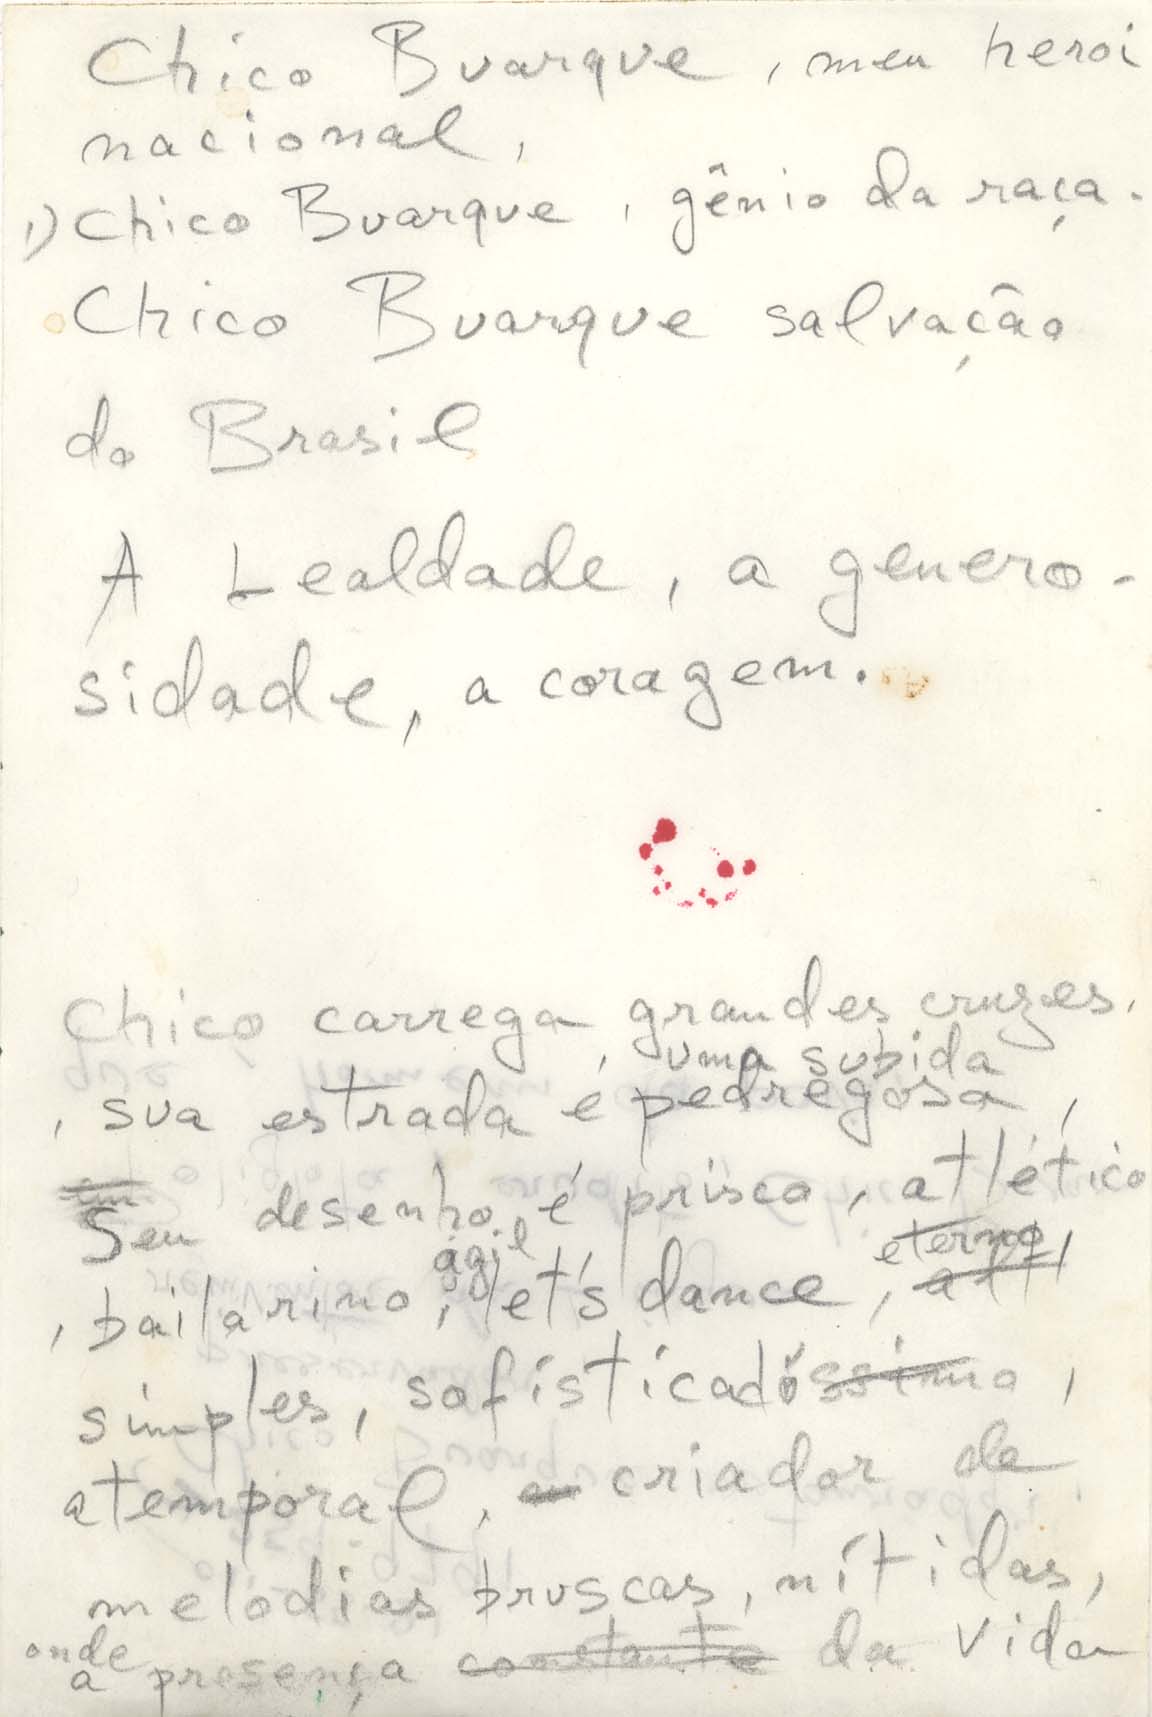 Chico Buarque, meu heroi
nacional,
1) Chico Buarque, gênio da raça.
Chico Buarque salvação
do Brasil
A Lealdade, a genero-
sidade, a coragem.
Chico carrega grandes cruzes,
uma subida
, sua estrada é pedregosa,
Seu desenho é prisco, atlético
ágil
eterno
, bailarino, let's dance,
simples, sofisticadóssimo,
atemporal, criador de
melodias bruscas, nítidas,
onde
a presença constante da vida